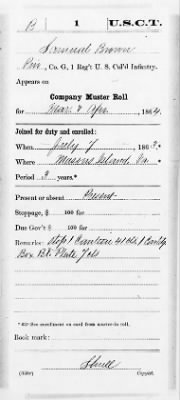 B 1 U.S.C.T.
Samuel Brown
Priv, Co. G, 1 Reg't U. S. Col'd Infantry.
Appears on
Company Muster Roll
for Mar & Apr, 1864.
Joined for duty and enrolled:
When July 7, 1863.
Where Masons Island, Va.
Period 3 years.*
Present or absent Present
Stoppage, $ 100 for
Due Gov't $ 100 for
Remarks: Stop 1 Canteen 41 cts 1
Box Plate 7 cts
* See enrollment on card from muster-in roll.
Book mark:
(358) Copyist.